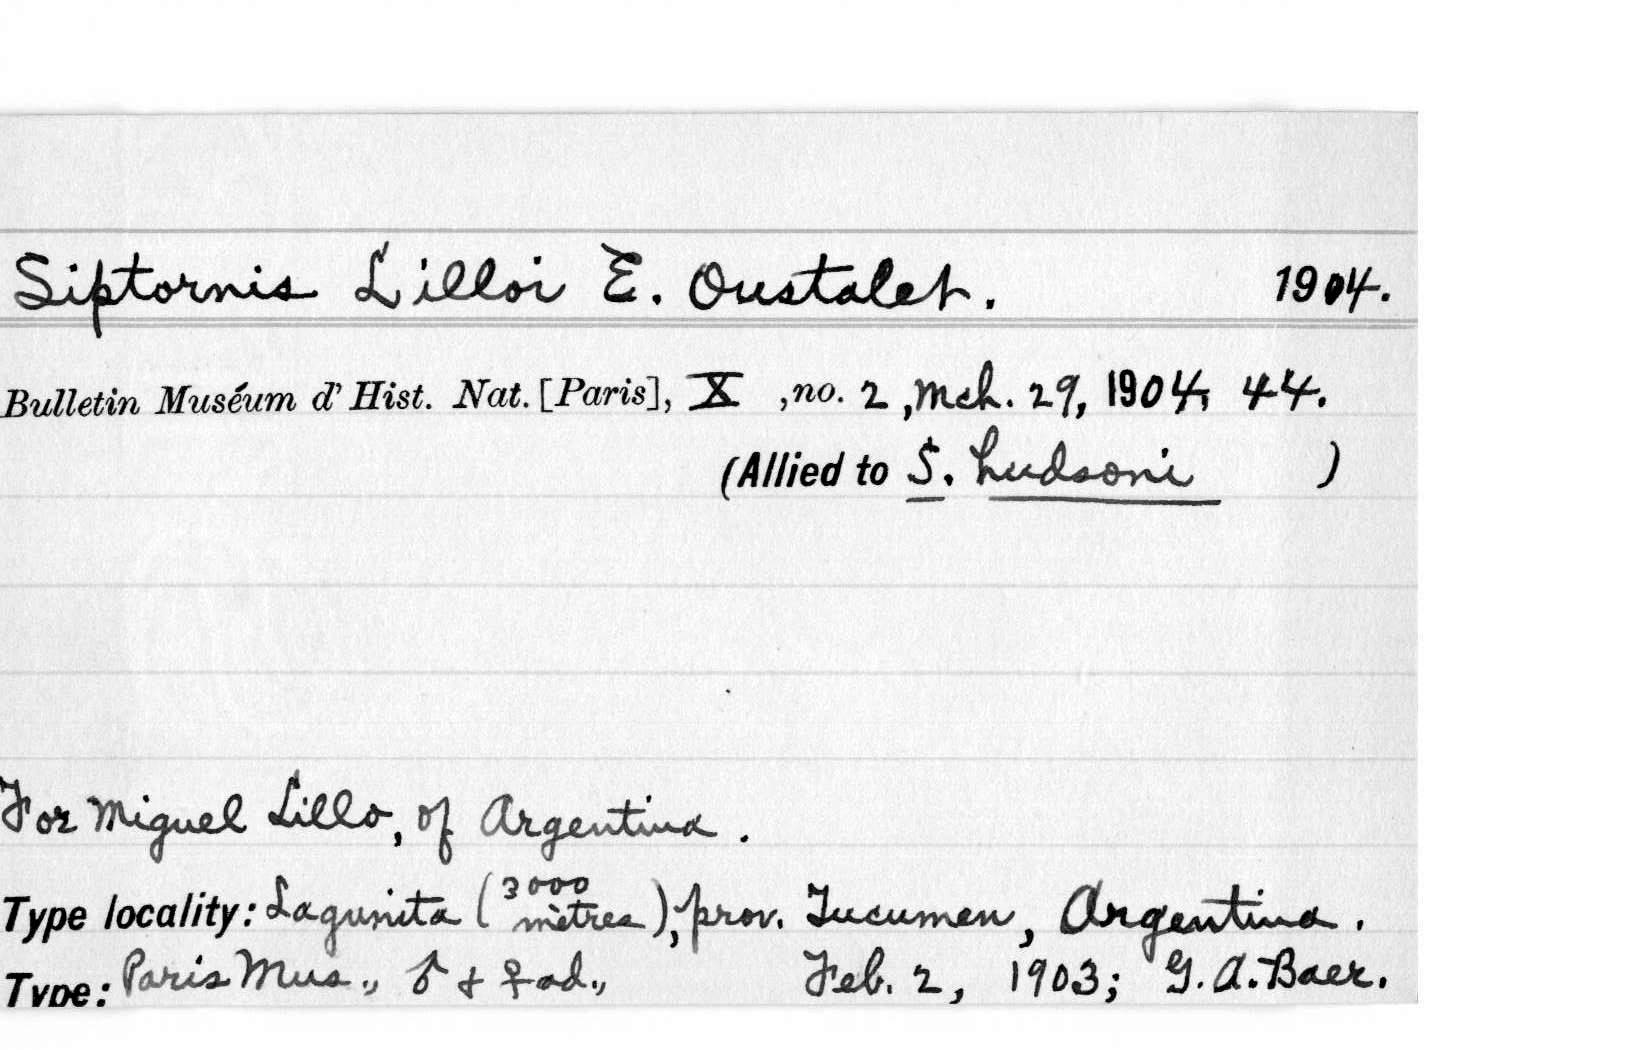 Siptornis Lilloi E. Oustalet. 1904.
Bulletin Muséum d' Hist. Nat. [Paris], X , no. 2, Mch. 29, 1904, 44.
(Allied to S. hudsoni )
For Miguel Lillo, of Argentina.
Type locality: Lagunita (3000 mètres), prov. Tucumen, Argentina.
Type: Paris Mus., ♂ + ♀ ad., Feb. 2, 1903; G. A. Baer.